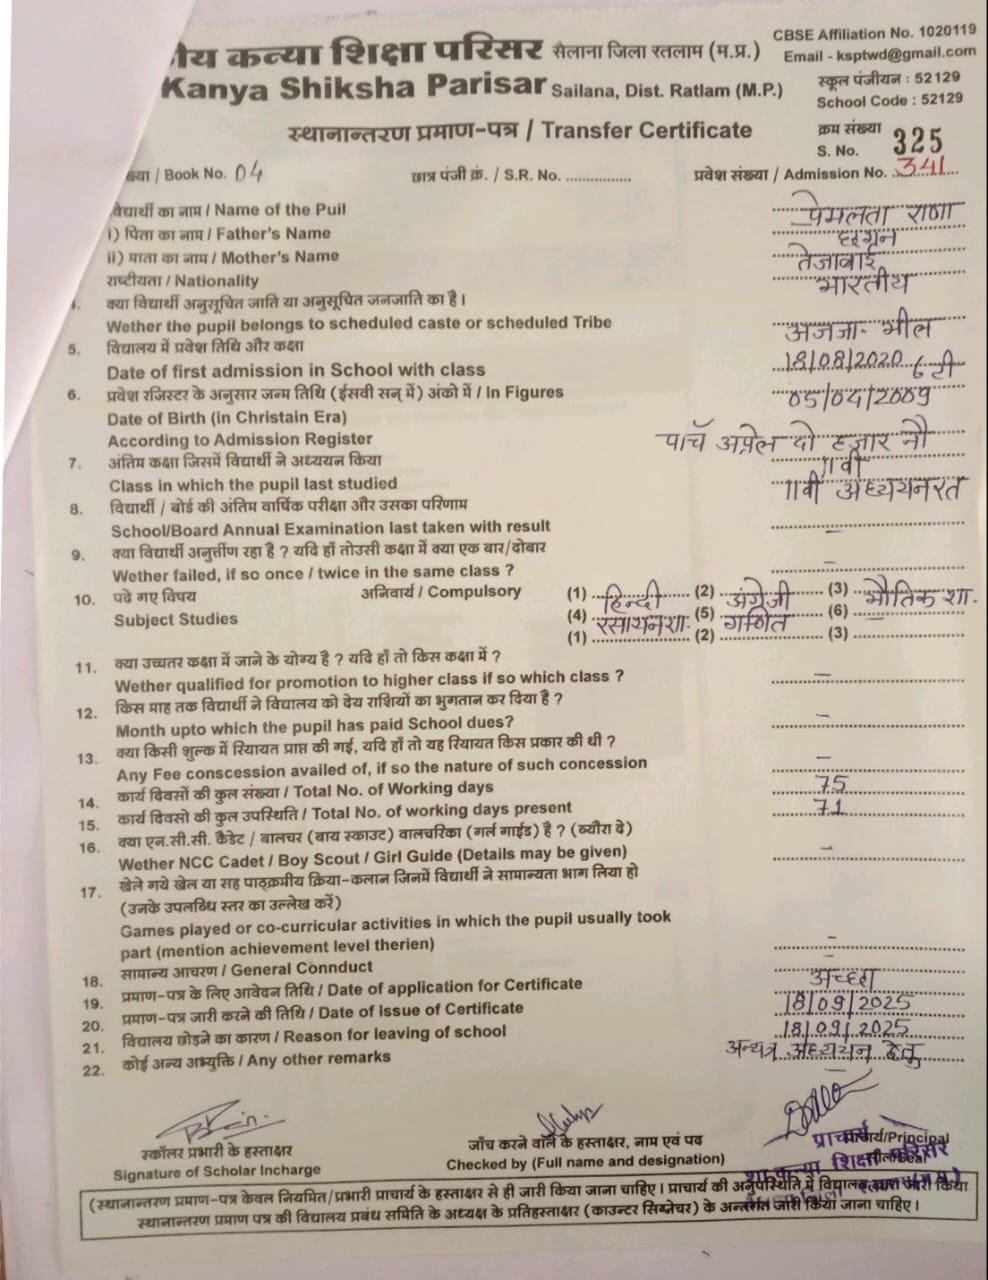 कन्या शिक्षा परिसर सैलाना जिला रतलाम (म.प्र.)
CBSE Affiliation No. 1020119
Email - ksptwd@gmail.com
Kanya Shiksha Parisar Sailana, Dist. Ratlam (M.P.)
स्कूल पंजीयन : 52129
School Code : 52129
स्थानान्तरण प्रमाण-पत्र / Transfer Certificate
क्रम संख्या
S. No. 325
/ Book No. 04
छात्र पंजी क्रं. / S.R. No. ................
प्रवेश संख्या / Admission No. 341
विद्यार्थी का नाम / Name of the Puil प्रेमलता राणा
i) पिता का नाम / Father's Name
ii) माता का नाम / Mother's Name तेजाबाई
राष्टीयता / Nationality भारतीय
क्या विद्यार्थी अनुसूचित जाति या अनुसूचित जनजाति का है।
Wether the pupil belongs to scheduled caste or scheduled Tribe अजजा- भील
5. विद्यालय में प्रवेश तिथि और कक्षा
Date of first admission in School with class 18/08/2020 6 टी
6. प्रवेश रजिस्टर के अनुसार जन्म तिथि (ईसवी सन् में) अंको में / In Figures 05/04/2009
Date of Birth (in Christain Era)
According to Admission Register पाचॅ अप्रेल दो हजार नौ
7. अंतिम कक्षा जिसमें विद्यार्थी ने अध्ययन किया 11वी
Class in which the pupil last studied 11वी अध्ययनरत
8. विद्यार्थी / बोर्ड की अंतिम वार्षिक परीक्षा और उसका परिणाम
School/Board Annual Examination last taken with result –
9. क्या विद्यार्थी अनुर्त्तीण रहा है ? यदि हाँ तोउसी कक्षा में क्या एक बार/दोबार
Wether failed, if so once / twice in the same class ? –
10. पढे गए विषय अनिवार्य / Compulsory (1) हिन्दी (2) अंग्रेजी (3) भौतिक शा.
Subject Studies (4) रसायनशा. (5) गणित (6) –
(1) ................ (2) ................ (3) ................
11. क्या उच्चतर कक्षा में जाने के योग्य है ? यदि हाँ तो किस कक्षा में ?
Wether qualified for promotion to higher class if so which class ? –
12. किस माह तक विद्यार्थी ने विद्यालय को देय राशियों का भुगतान कर दिया है ?
Month upto which the pupil has paid School dues? –
13. क्या किसी शुल्क में रियायत प्राप्त की गई, यदि हाँ तो यह रियायत किस प्रकार की थी ?
Any Fee conscession availed of, if so the nature of such concession –
14. कार्य दिवसों की कुल संख्या / Total No. of Working days 75
15. कार्य दिवसो की कुल उपस्थिति / Total No. of working days present 71
16. क्या एन.सी.सी. कैडेट / बालचर (बाय स्काउट) वालचरिका (गर्ल गाईड) है ? (ब्यौरा दे)
Wether NCC Cadet / Boy Scout / Girl Guide (Details may be given) –
17. खेले गये खेल या सह पाठ्क्रमीय क्रिया-कलान जिनमें विद्यार्थी ने सामान्यता भाग लिया हो
(उनके उपलब्धि स्तर का उल्लेख करें)
Games played or co-curricular activities in which the pupil usually took
part (mention achievement level therien) –
18. सामान्य आचरण / General Connduct अच्छा
19. प्रमाण-पत्र के लिए आवेदन तिथि / Date of application for Certificate 18/09/2025
20. प्रमाण-पत्र जारी करने की तिथि / Date of Issue of Certificate 18/09/2025
21. विद्यालय छोड़ने का कारण / Reason for leaving of school अन्यत्र अध्ययन हेतु
22. कोई अन्य अभ्युक्ति / Any other remarks –
स्कॉलर प्रभारी के हस्ताक्षर
Signature of Scholar Incharge
जाँच करने वाले के हस्ताक्षर, नाम एवं पद
Checked by (Full name and designation)
प्राचार्य
/Principal
कन्या शिक्षा परिसर
(स्थानान्तरण प्रमाण-पत्र केवल नियमित/प्रभारी प्राचार्य के हस्ताक्षर से ही जारी किया जाना चाहिए। प्राचार्य की अनुपस्थिति में विद्यालय जारी किया
स्थानान्तरण प्रमाण पत्र की विद्यालय प्रबंध समिति के अध्यक्ष के प्रतिहस्ताक्षर (काउन्टर सिग्नेचर) के अर्न्तगत जारी किया जाना चाहिए।